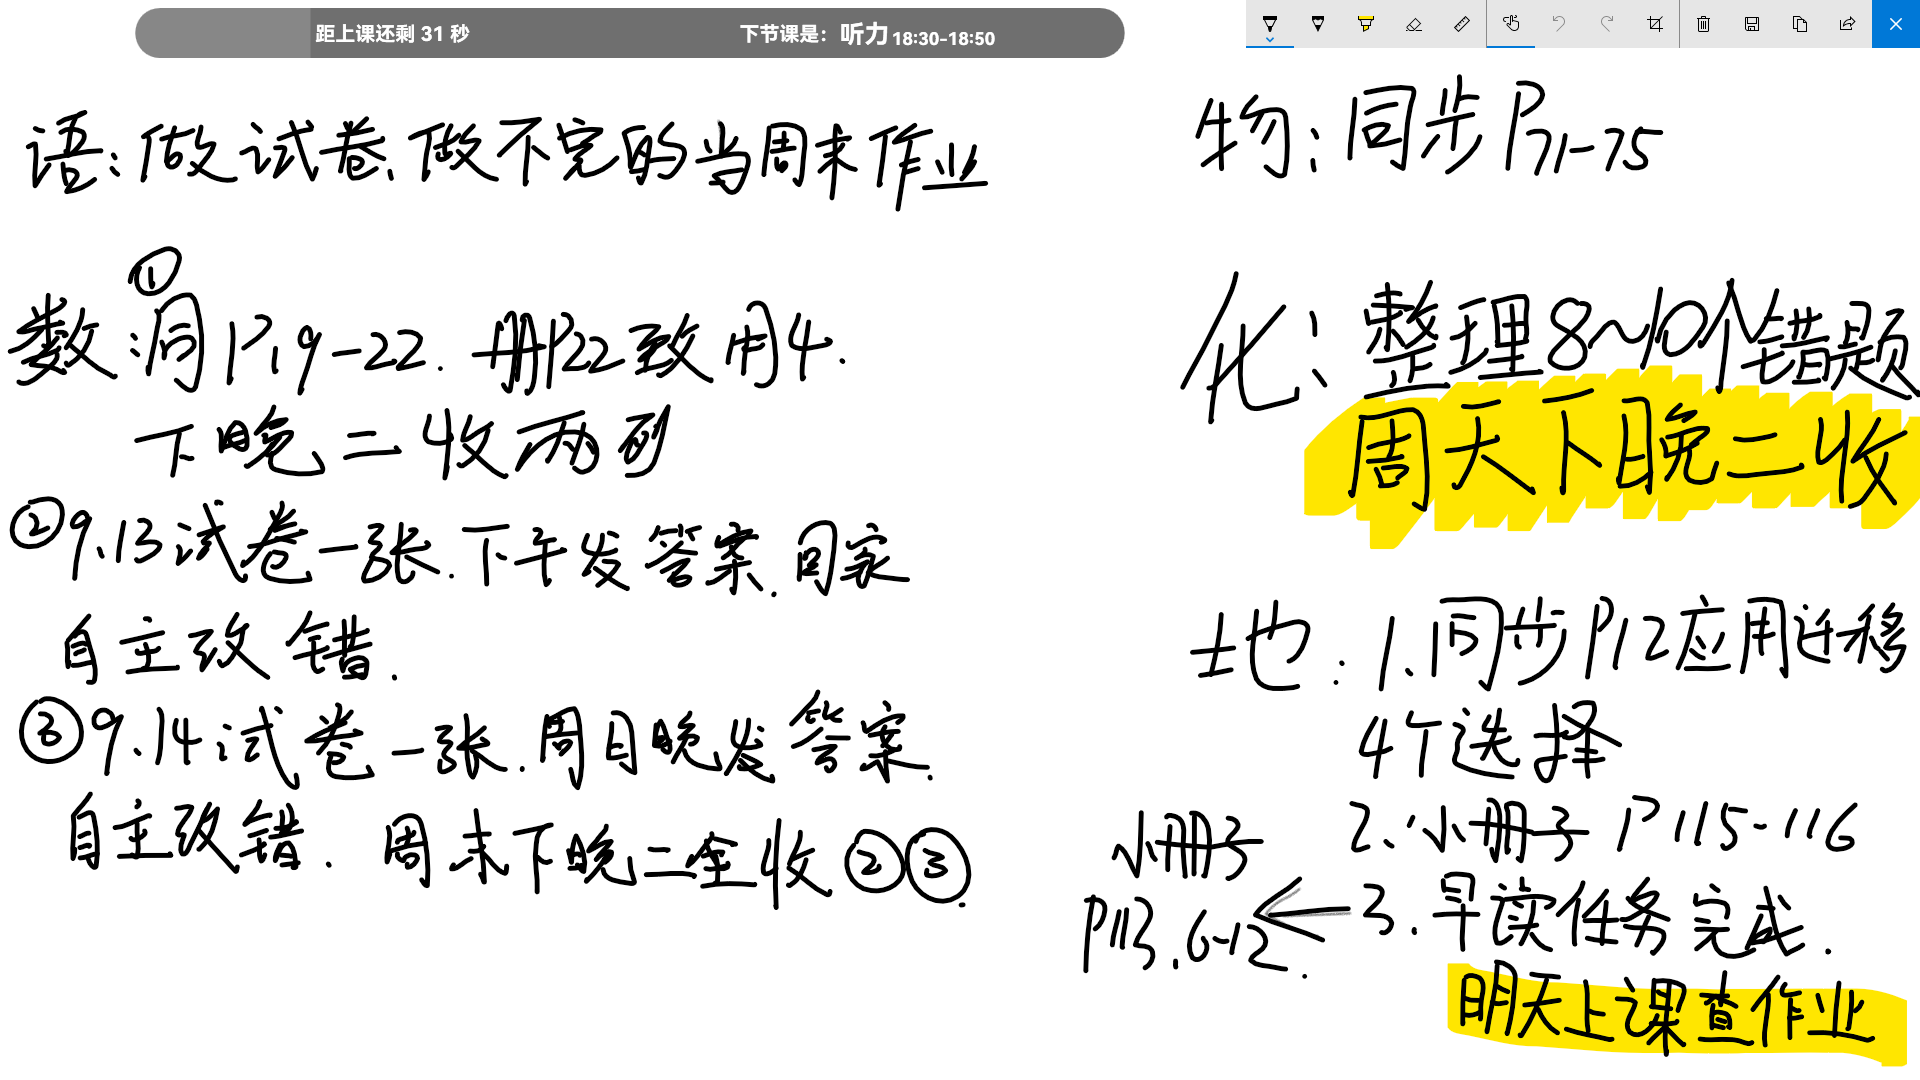 距上课还剩 31 秒
下节课是：听力 18:30-18:50
语：做试卷、做不完的当周末作业
数：①同P19-22. 册P22致用4.
下晚二收两列
②9.13试卷一张.下午发答案.回家
自主改错.
③9.14试卷一张.周日晚发答案.
自主改错. 周末下晚二全收②③.
物：同步P71-75
化：整理8~10个错题
周天下晚二收
地：1.同步P12应用迁移
4个选择
2.小册子P115-116
3.早读任务完成.
小册子
P113.6-12.
明天上课查作业